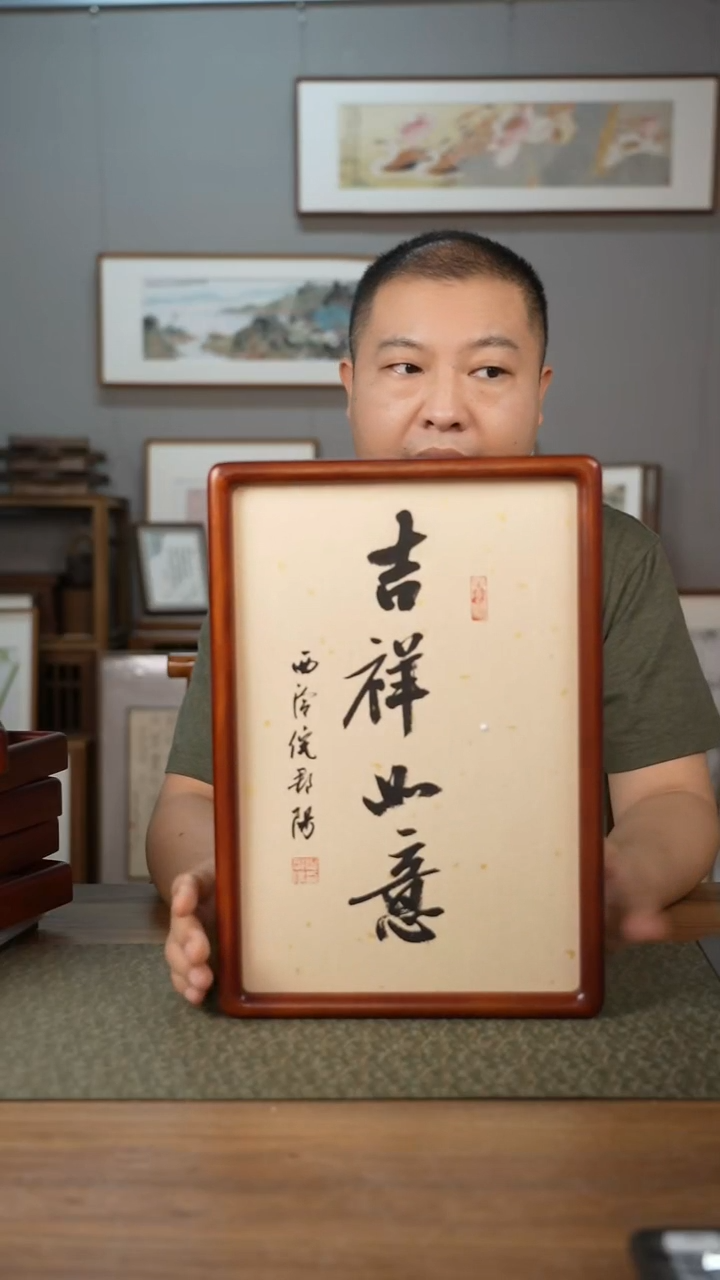 吉祥如意
西泠倪郡陽